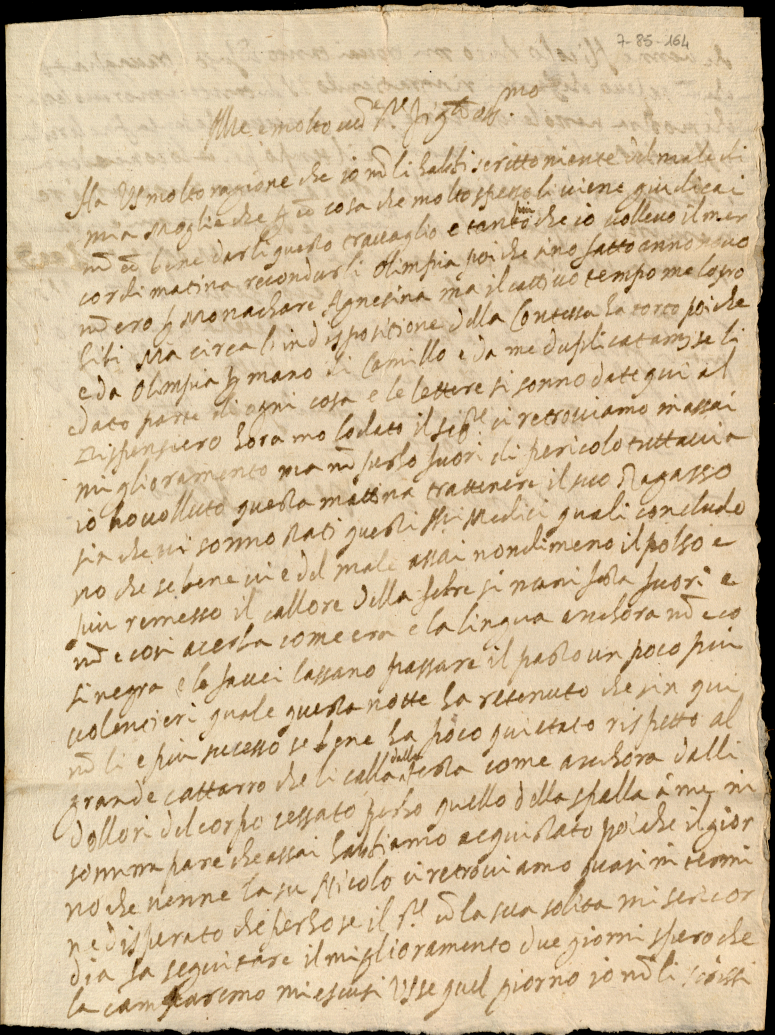 7-85-164
Ill.e e molto
Ha VS molto ragione che io nō li habbi scritto niente del male di
mia moglie che p̄ eē cosa che molto spesso li viene giudicai
nō eē bene darli questo travaglio e tanto più che io vollevo il mer
cordi matina recondurli Olimpia poi che ano fatto anno novo
nō ero p̄ Monachare Agnesina ma il cattivo tempo me lo pro
hibi Ma circa l'indispositione della Contessa ha torto poi che
e da Olimpia p̄ mano di Camillo e da me duplicatam.te se li
e dato parte di ogni cosa e le lettere si sonno date qui al
Dispensiero hora mo lodato il sig.re ci retroviamo in assai
miglioramento ma nō perho fuori di pericolo tuttavia
io ho volluto questa mattina trattenere il suo Ragasso
sin che vi sonno stati questi SS.ri Medici quali conclude
no che se bene vi e del male assai nondimeno il polso e
più remesso il callore della febre si manifesta fuori e
nō e cosi acerba come era e la lingua anchora nō e co
si negra e le fauci lassano passare il pasto un poco più
volentieri quale questa notte ha retenuto che sin qui
nō li e più sucesso se bene ha poco quietato rispetto al
grande cattarro che li calla dalla testa come anchora dalli
dollori del corpo cessato perho quello della spalla a me in
somma pare che assai habbiamo acquistato poi che il gior
no che venne la su Nicolo ci retroviamo quasi in termi
ne disperato che perho se il s.re cō la sua solita misericor
dia fa seguitare il miglioramento due giorni spero che
la camparemo mi escusi VS se quel giorno io nō li scrissi